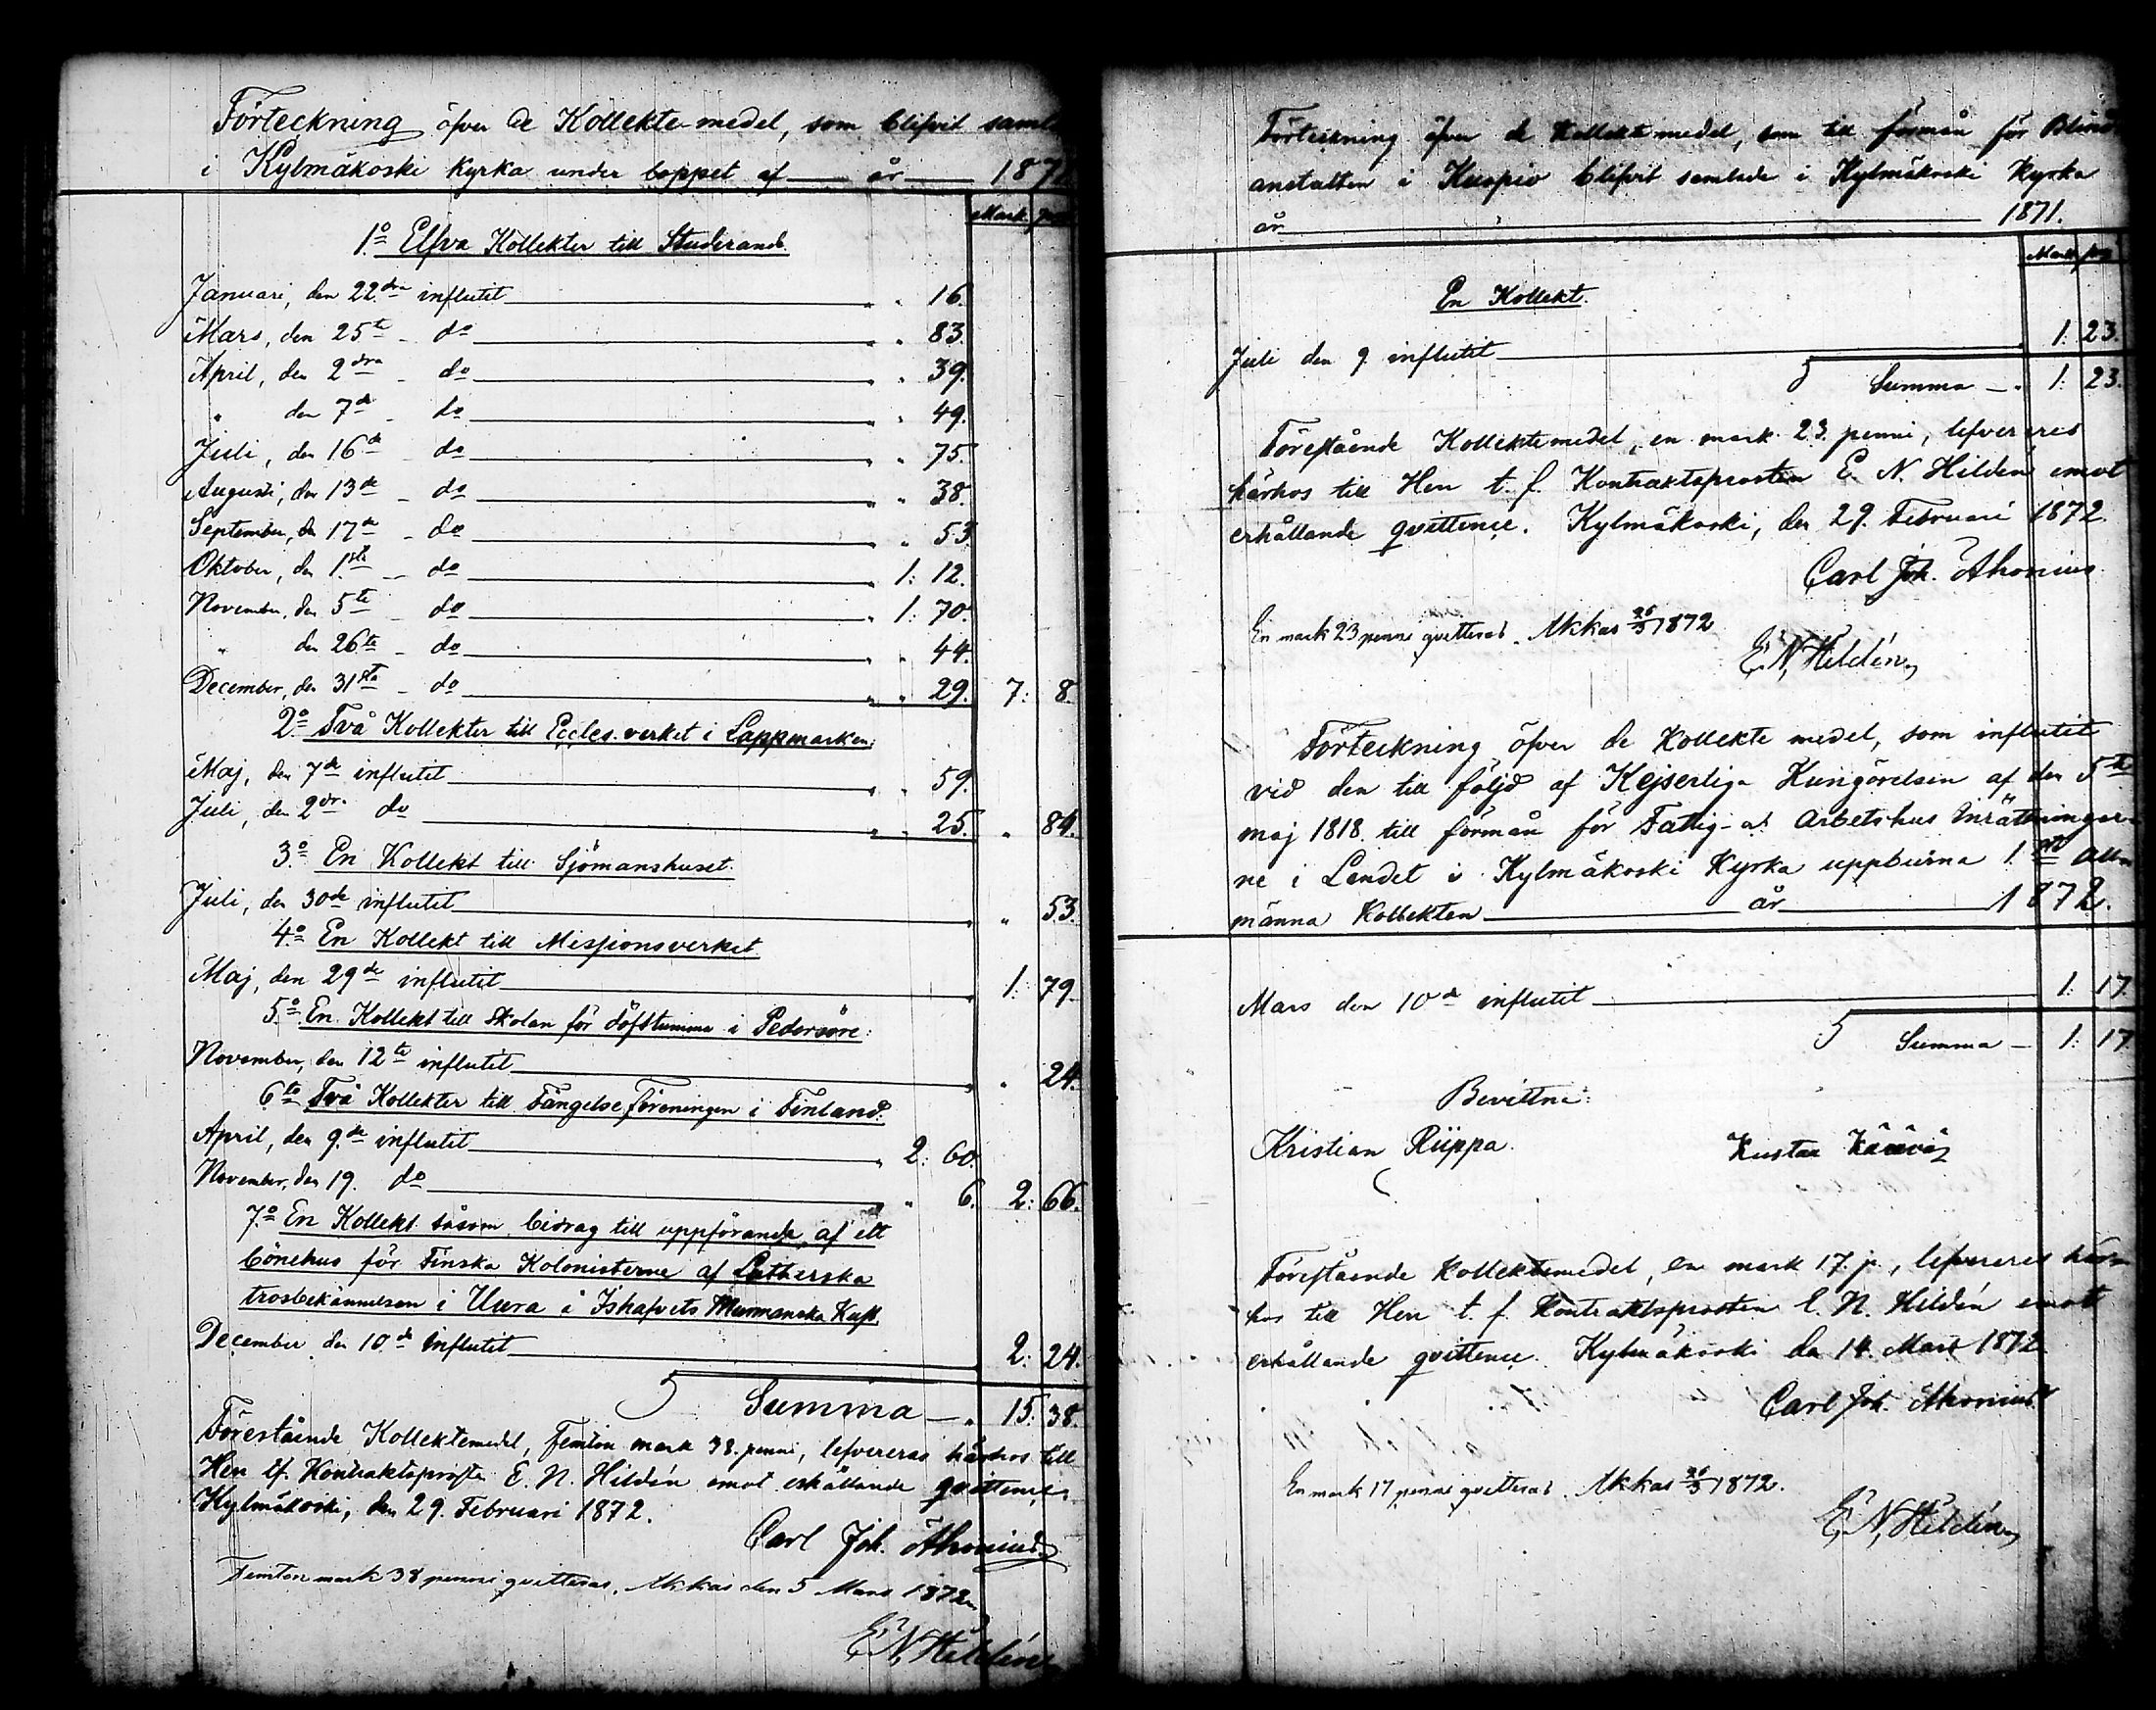 Förteckning öfver de Kollekte-medel, som blifvit samla
i Kylmäkoski kyrka under loppet af år 1871
Mark. p
1o Elfva Kollekter till Studerande.
Januari, den 22dra influtit " " 16.
Mars, den 25te - do " " 83.
April, den 2dra - do " " 39.
" den 7de - do " " 49.
Juli, den 16de - do " " 75.
Augusti, den 13de - do " " 38.
September, den 17de - do " " 53.
Oktober, den 1sta - do " 1: 12.
November, den 5te - do " 1: 70.
" den 26te - do " " 44.
December, den 31sta - do " " 29. 7: 8.
2o Två Kollekter till Eccles. verket i Lappmarken:
Maj, den 7de influtit " " 59.
Juli, den 2dra do " " 25. " 84.
3o En Kollekt till Sjömanshuset.
Juli, den 30de influtit " " 53.
4o En Kollekt till Missionsverket.
Maj, den 29de influtit " 1: 79.
5o En Kollekt till skolan för döfstumma i Pedersöre:
November, den 12te influtit " " 24.
6to Två Kollekter till Fängelse Föreningen i Finland.
April, den 9de influtit " 2: 60.
November, den 19. do " 6. 2: 66.
7o En Kollekt såsom bidrag till uppförande af ett
bönehus för Finska Kolonisterne af Lutherska
trosbekännelsen i Uura i Ishafvets Murmanska Kust.
December den 10de influtit 2: 24.
Summa — " 15: 38.
Förestående Kollektemedel, femton mark 38. penni, lefvereras härhos till
Herr tf. Kontraktsprosten E. N. Hildén emot erhållande qvittence.
Kylmäkoski, den 29. Februari 1872.
Carl Joh. Ahonius
Femton mark 38 penni qvitteras, Akkas den 5 Mars 1872.
E. N. Hildén
Förteckning öfver de Kollekte medel, som till förmån för Blind
anstalten i Kuopio blifvit samlade i Kylmäkoski Kyrka
år 1871.
Mark p
En Kollekt.
Juli den 9. influtit 1: 23.
Summa — " 1: 23.
Förestående Kollektemedel, en mark 23. penni, lefvereres
härhos till Herr t. f. Kontraktsprosten E. N. Hildén emot
erhållande qvittence. Kylmäkoski, den 29. Februari 1872.
Carl Joh. Ahonius.
En mark 23 penni qvitteras. Akkas 1872
E. N. Hildén
Förteckning öfver de Kollekte medel, som influtit
vid den till följd af Kejserliga Kungörelsen af den 5te
maj 1818 till förmån för Fattig- ak Arbetshus Inrättningar-
ne i Landet i Kylmäkoski Kyrka uppburna 1sta All-
männa Kollekten år 1872.
Mars den 10de influtit 1: 17.
Summa — 1: 17.
Bevittna:
Kristian Rüppa. Kustaa
Förestående Kollektemedel, en mark 17. p., lefvereres här-
hos till Herr t. f. Kontraktsprosten E. N. Hildén emot
erhållande qvittence. Kylmäkoski den 14. Mars 1872
Carl Joh. Ahonius
En mark 17 penni qvitteras. Akkas 1872.
E. N. Hildén